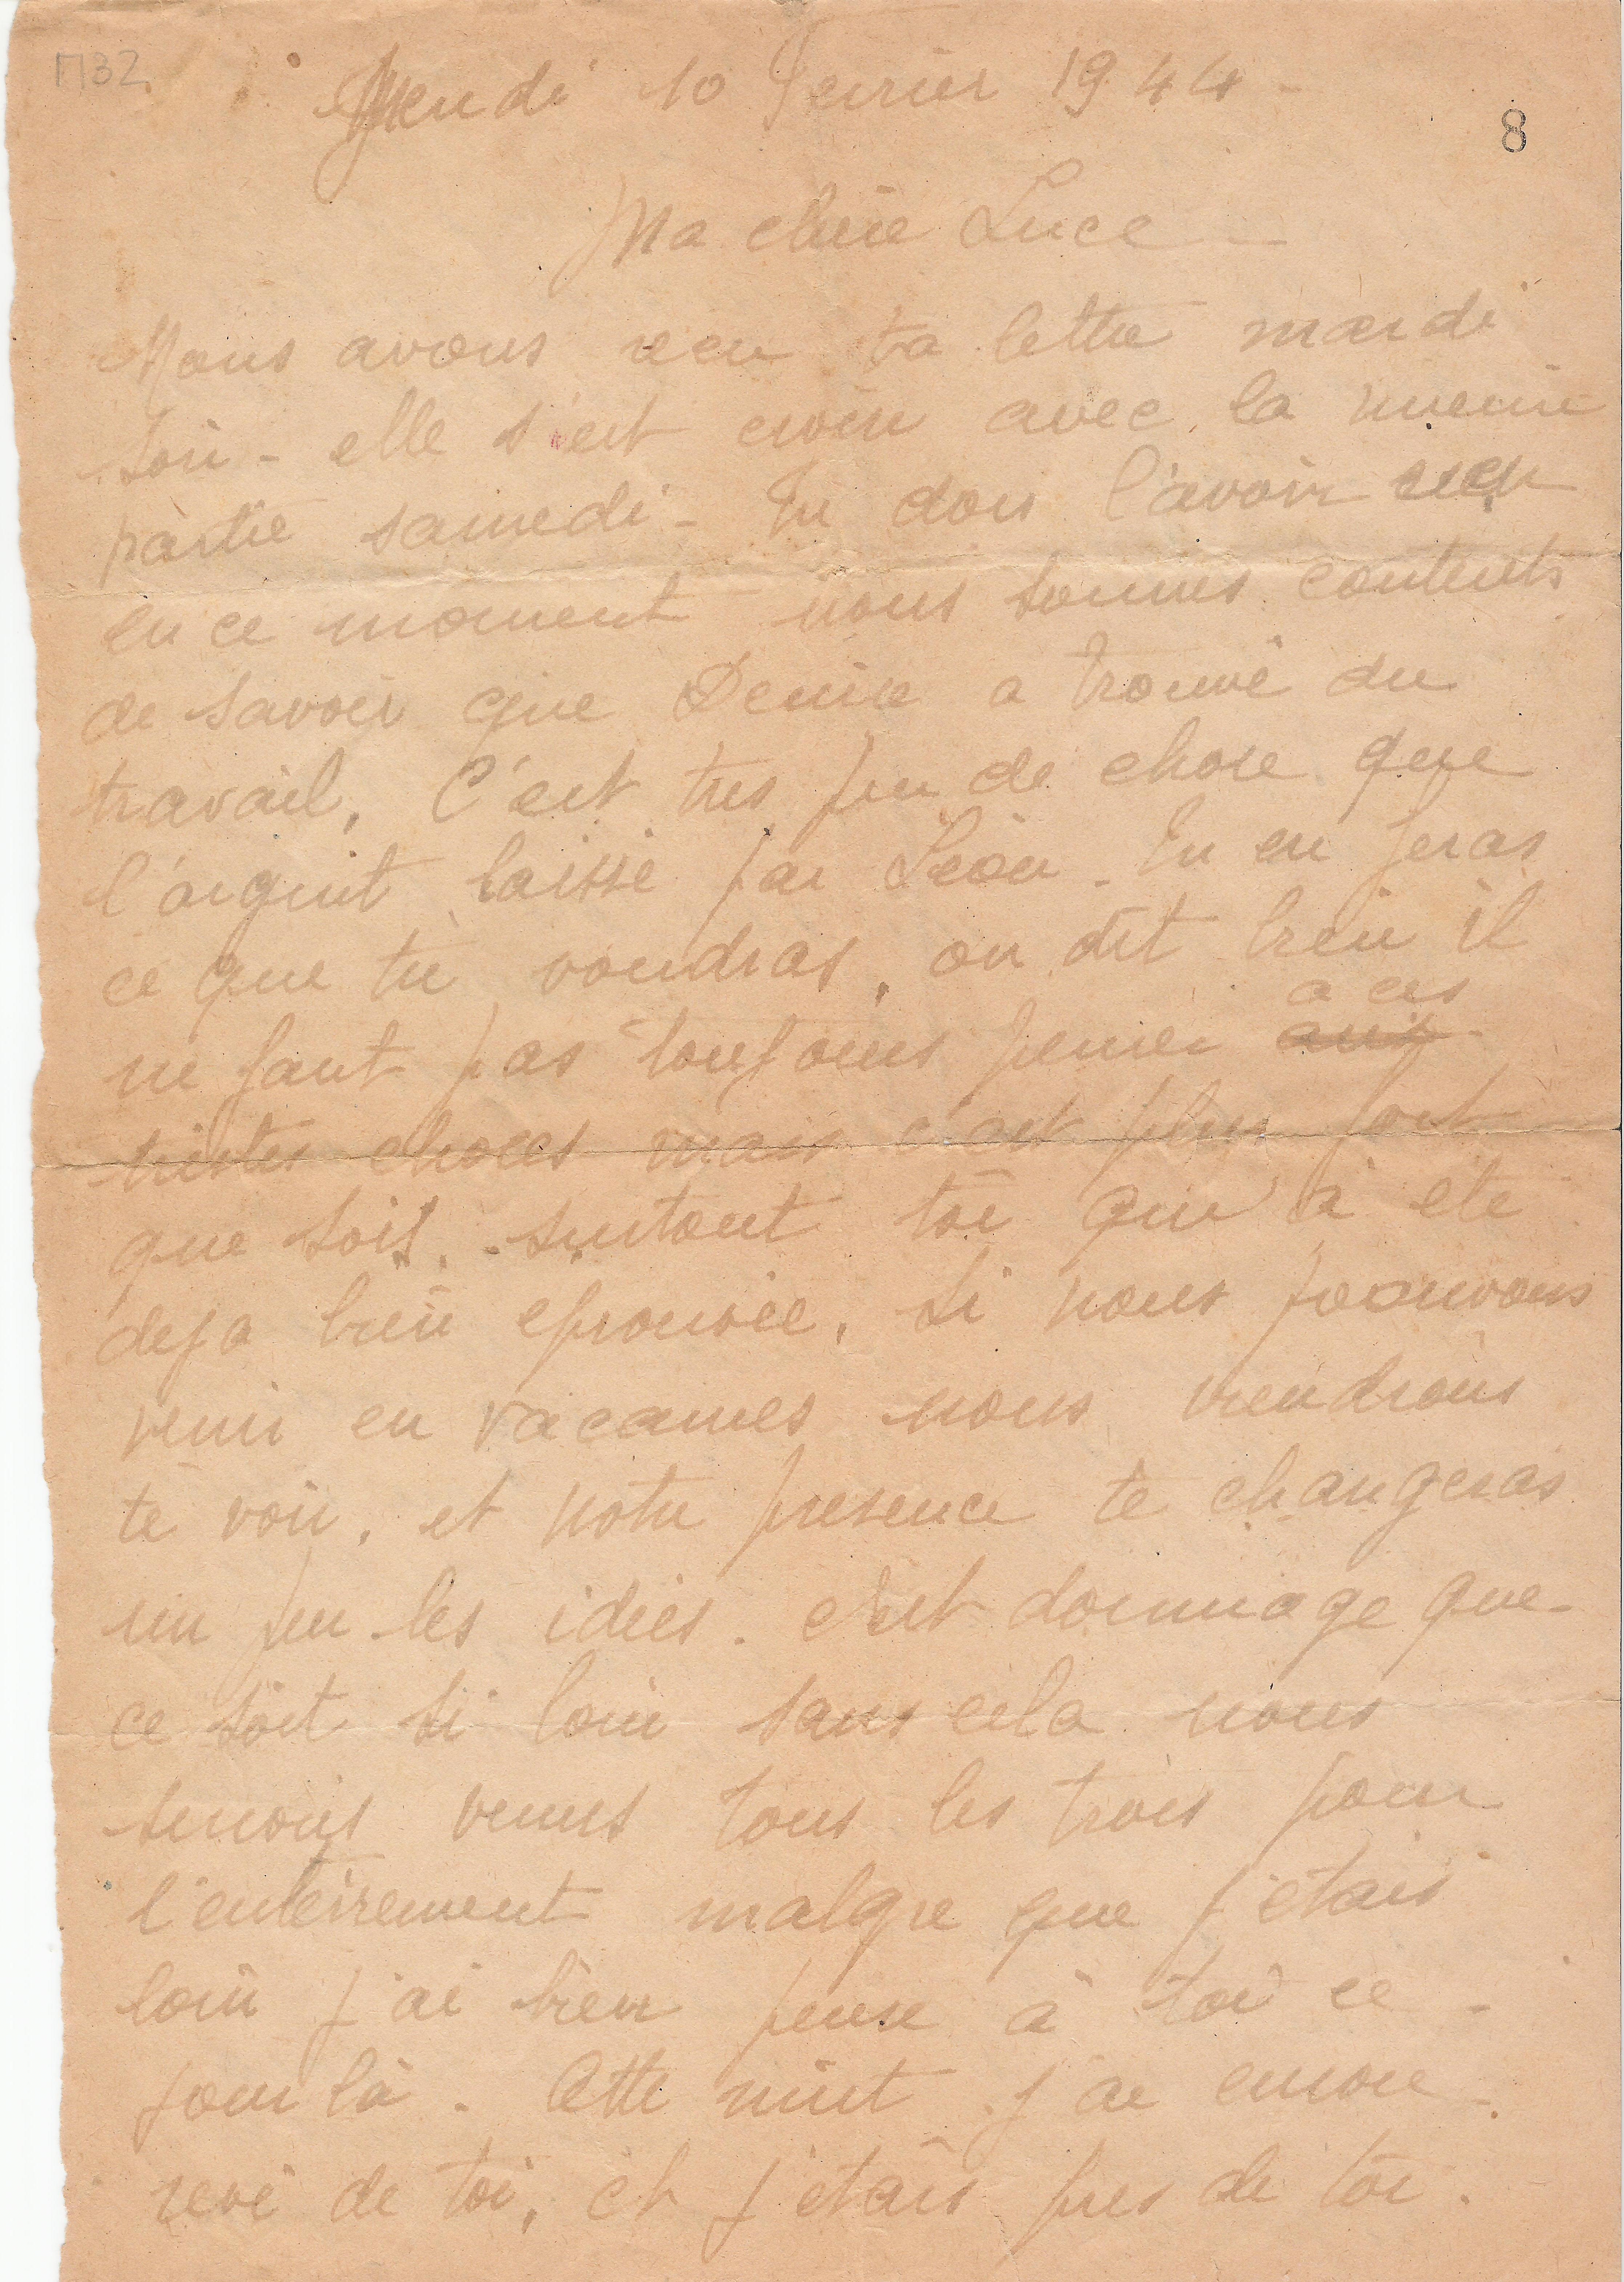 M32
Jeudi 10 Fevrier 1944 -
8
Ma chère Luce -
Nous avons recu ta lettre mardi
soir - elle s'est croisée avec la mienne
partie samedi - Tu dois l'avoir recu
en ce moment nous sommes contents
de savoir que Denise a trouvé du
travail, C'est tres peu de chose que
l'argent laissé par Léon. Tu en feras
ce que tu voudras, on dit bien il
ne faut pas toujours penser a ces
tristes choses mais c'est plus fort
que soit. surtout toi qui a ete
deja bien eprouvée, Si nous pouvons
venir en vacances nous viendrons
te voir, et notre presence te changeras
un peu les idées. C'est dommage que
ce soit si loin sans cela nous
serions venus tous les trois pour
l'enterrement malgre que j'étais
loin j'ai bien pense à toi ce
jour là. Cette nuit j'ai encore
revé de toi, et j'étais pres de toi.